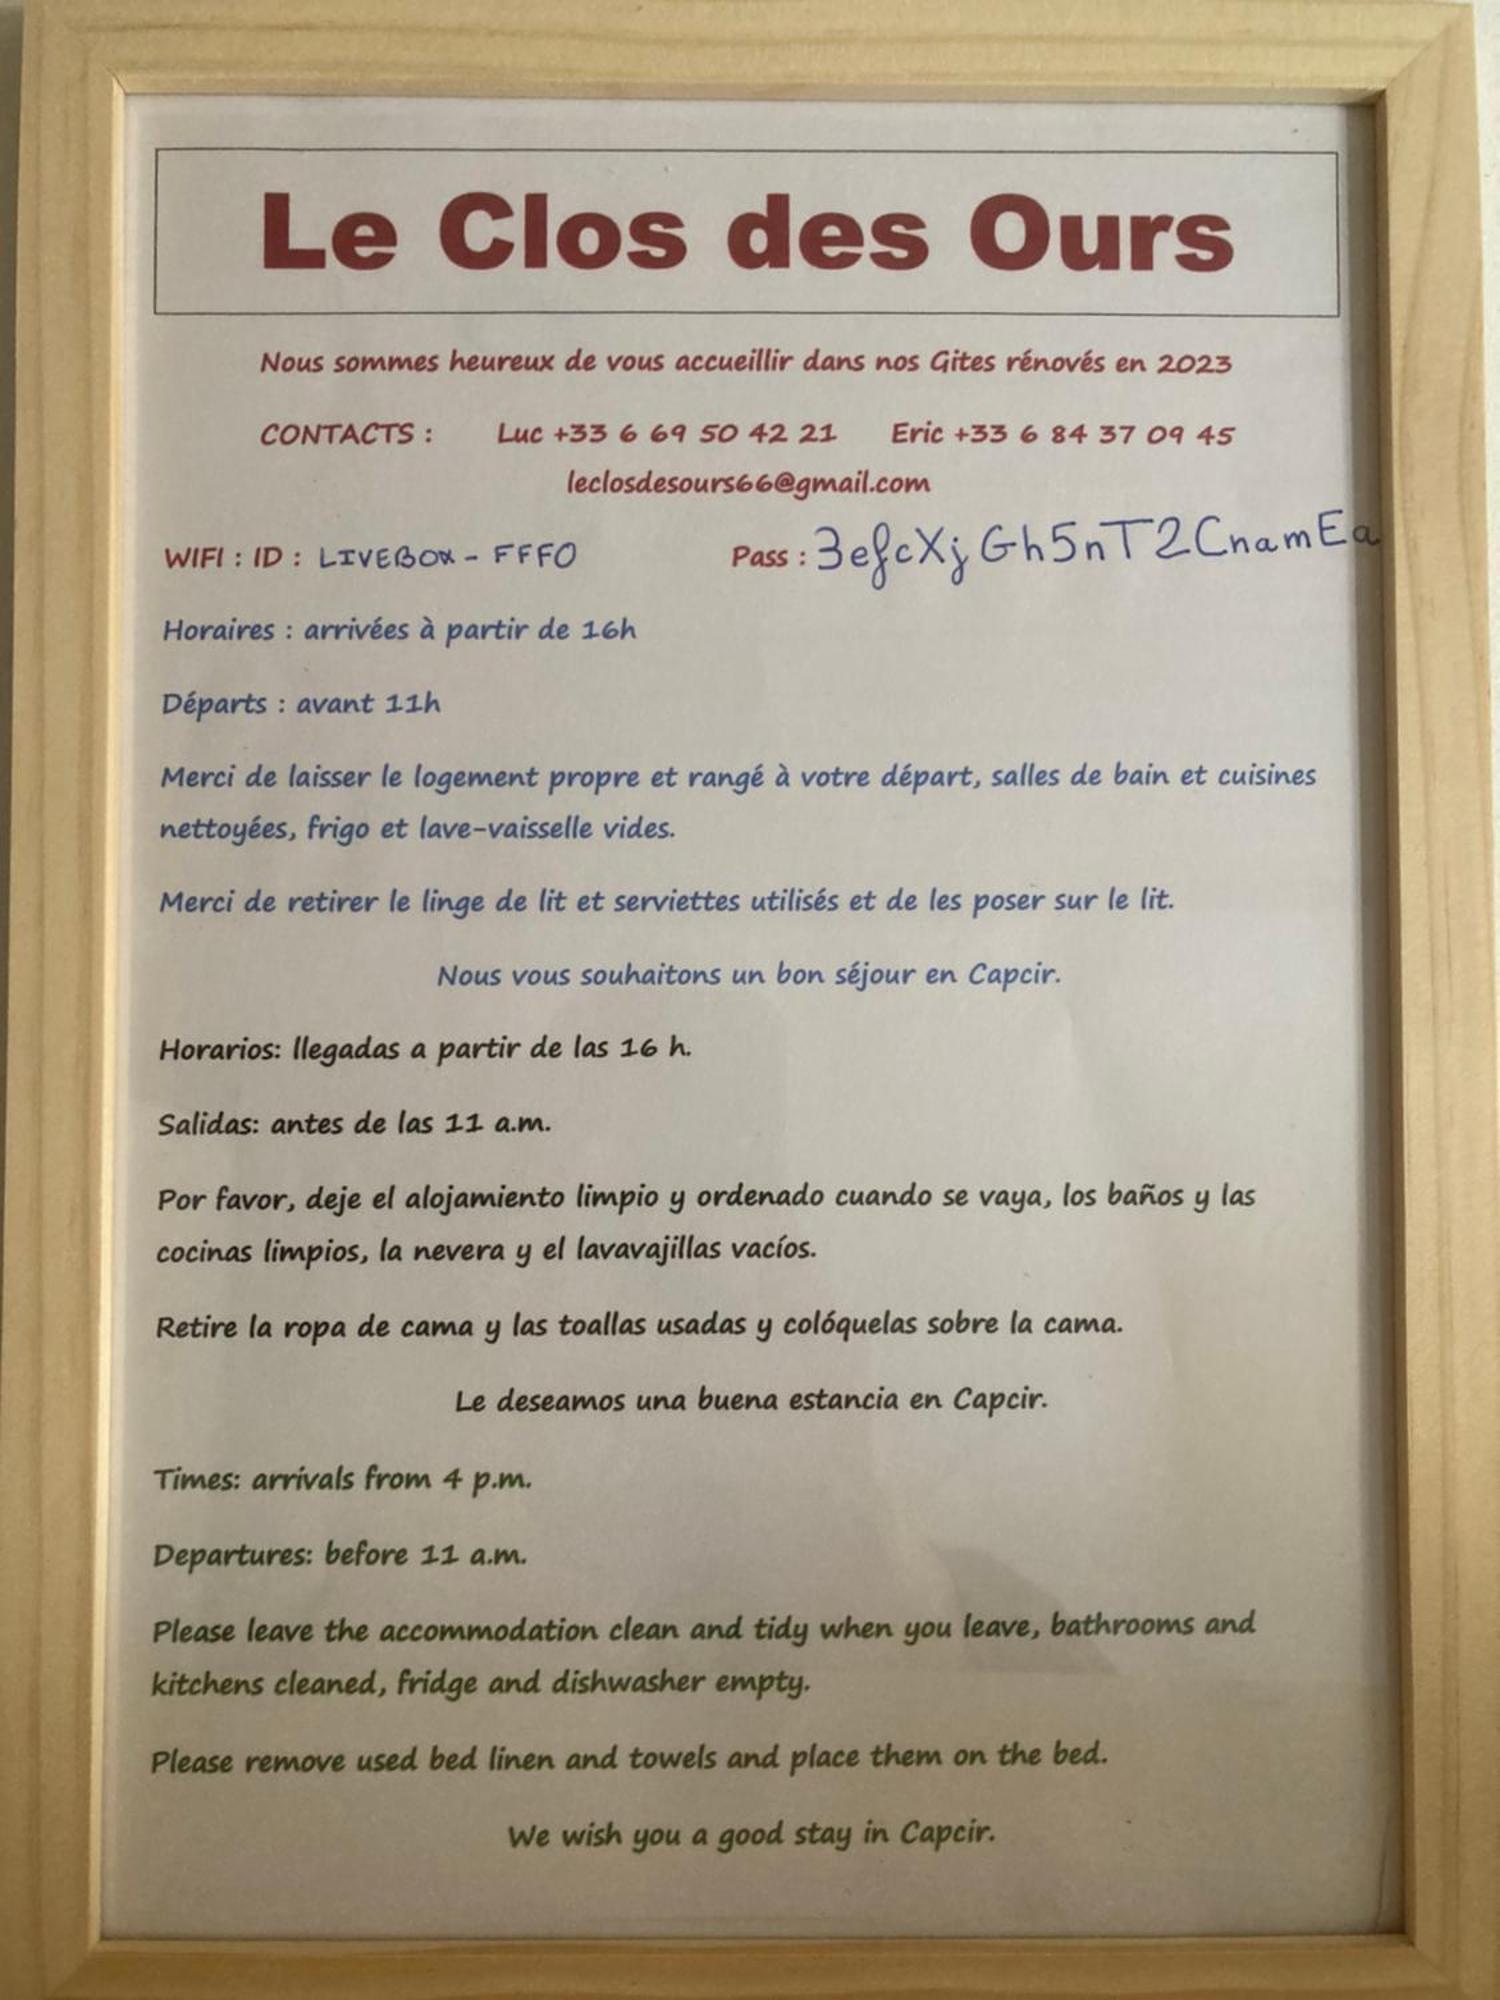 Le Clos des Ours
Nous sommes heureux de vous accueillir dans nos Gites rénovés en 2023
CONTACTS : Luc +33 6 69 50 42 21 Eric +33 6 84 37 09 45
leclosdesours66@gmail.com
WIFI : ID : LIVEBOX - FFF0 Pass : 3efcXjGh5nT2CnamEa
Horaires : arrivées à partir de 16h
Départs : avant 11h
Merci de laisser le logement propre et rangé à votre départ, salles de bain et cuisines
nettoyées, frigo et lave-vaisselle vides.
Merci de retirer le linge de lit et serviettes utilisés et de les poser sur le lit.
Nous vous souhaitons un bon séjour en Capcir.
Horarios: llegadas a partir de las 16 h.
Salidas: antes de las 11 a.m.
Por favor, deje el alojamiento limpio y ordenado cuando se vaya, los baños y las
cocinas limpios, la nevera y el lavavajillas vacíos.
Retire la ropa de cama y las toallas usadas y colóquelas sobre la cama.
Le deseamos una buena estancia en Capcir.
Times: arrivals from 4 p.m.
Departures: before 11 a.m.
Please leave the accommodation clean and tidy when you leave, bathrooms and
kitchens cleaned, fridge and dishwasher empty.
Please remove used bed linen and towels and place them on the bed.
We wish you a good stay in Capcir.